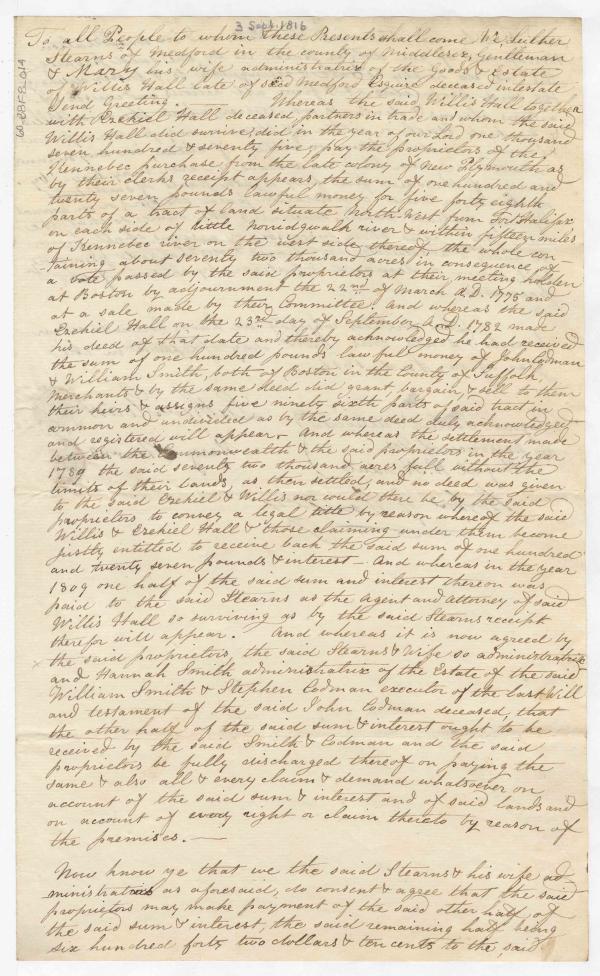 3 Sept. 1816
To all People to whom these Presents shall come We, Luther
Stearns of Medford in the county of Middlesex, Gentleman
& Mary his wife administratrix of the Goods & Estate
of Willis Hall late of said Medford Esquire deceased intestate
Send Greeting. Whereas the said Willis Hall together
with Ezekiel Hall deceased, partners in trade and whom the said
Willis Hall did survive, did in the year of our Lord one thousand
seven hundred & seventy five, pay the proprietors of the
Kennebec purchase from the late colony of New Plymouth as
by their clerks receipt appears, the sum of one hundred and
twenty seven pounds lawful money for five forty eighth
parts of a tract of land situate North-West from Fort Halifax
on each side of little Norridgwalk river & within fifteen miles
of Kennebec river on the west side thereof the whole con-
taining about seventy two thousand acres in consequence of
a vote passed by the said proprietors at their meeting holden
at Boston by adjournment the 22nd of March A.D. 1775 and
at a sale made by their Committee. And whereas the said
Ezekiel Hall on the 23rd day of September A.D. 1782 made
his deed of that date and thereby acknowledged he had received
the sum of one hundred pounds lawful money of John Codman
& William Smith, both of Boston in the County of Suffolk,
Merchants & by the same deed did grant, bargain, & sell to them
their heirs & assigns five ninety sixth parts of said tract in
common and undivided as by the same deed duly acknowledged
and registered will appear. And whereas the settlement made
between the Commonwealth & the said proprietors in the year
1789 the said seventy two thousand acres fall without the
limits of their lands, as then settled, and no deed was given
to the said Ezekiel & Willis nor would there be by the said
proprietors to convey a legal title by reason whereof the said
Willis & Ezekiel Hall & those claiming under them become
justly entitled to receive back the said sum of one hundred
and twenty seven pounds & interest - And whereas in the year
1809 one half of the said sum and interest thereon was
paid to the said Stearns as the Agent and Attorney of said
Willis Hall so surviving as by the said Stearns receipt
therefor will appear. And whereas it is now agreed by
the said proprietors, the said Stearns & Wife so administratrix
and Hannah Smith administratrix of the Estate of the said
William Smith & Stephen Codman executor of the last Will
and testament of the said John Codman deceased, that
the other half of the said sum & interest ought to be
received by the said Smith & Codman and the said
proprietors be fully discharged thereof on paying the
same & also all & every claim & demand whatsoever on
account of the said sum & interest and of said lands and
on account of every right or claim thereto by reason of
the premises. -
Now know ye that we the said Stearns & his wife ad-
ministratrix as aforesaid, do consent & agree that the said
proprietors may make payment of the said other half of
the said sum & interest, the said remaining half being
six hundred forty two dollars & ten cents to the said